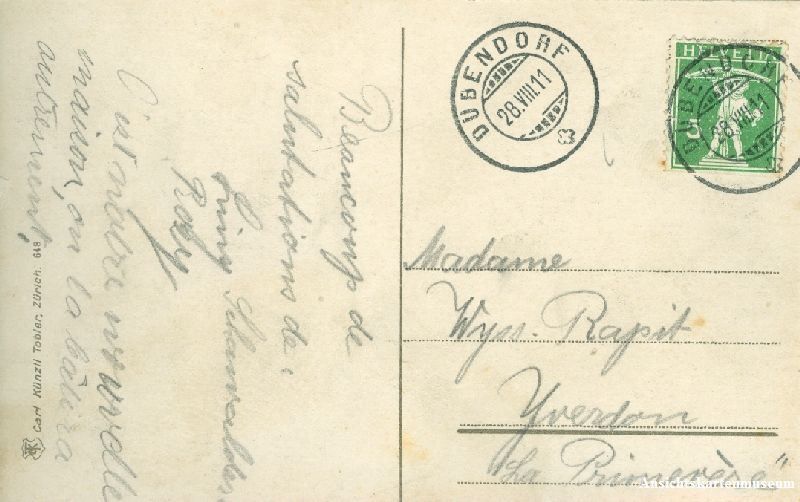 Beaucoup de
salutations de
Rösy
C'est notre nouvelle
maison, on la bâtira
autrement,
Carl Künzli Tobler, Zürich. 648
DÜBENDORF
28.VIII.11
HELVETIA
5
DÜBENDORF
28.VIII.11
Madame
Wyss-Rapit
Yverdon
"La Primevère"
Ansichtskartenmuseum